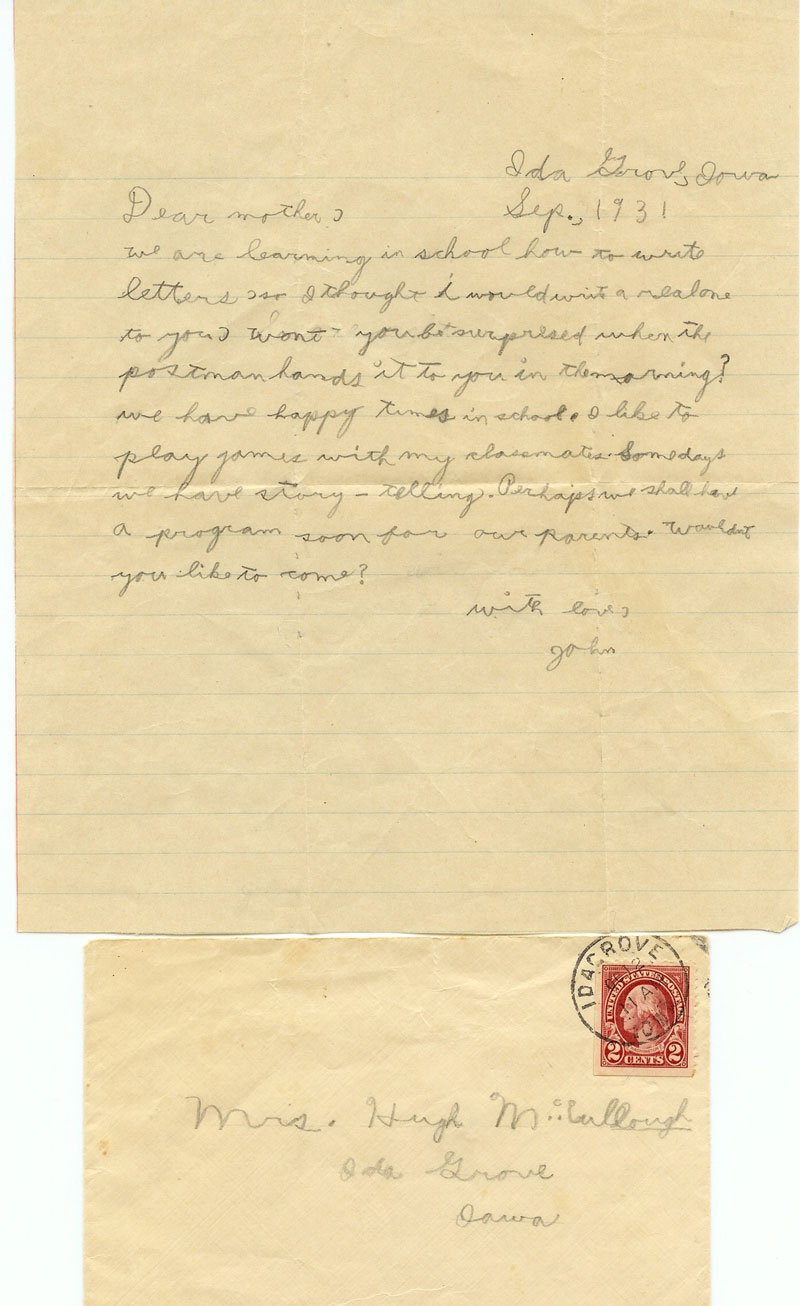 Ida Grove, Iowa
Dear mother,
Sep., 1931
we are learning in school how to write
letters, so I thought i would write a real one
to you, Won't you be surprised when the
postman hands it to you in the morning?
we have happy times in school. I like to
play games with my classmates. Some days
we have story-telling. Perhaps we shall have
a program soon for our parents. Wouldn't
you like to come?
with love,
John
IDA GROVE
IOWA
UNITED STATES POSTAGE
2 CENTS 2
Mrs. Hugh McCullough
Ida Grove
Iowa